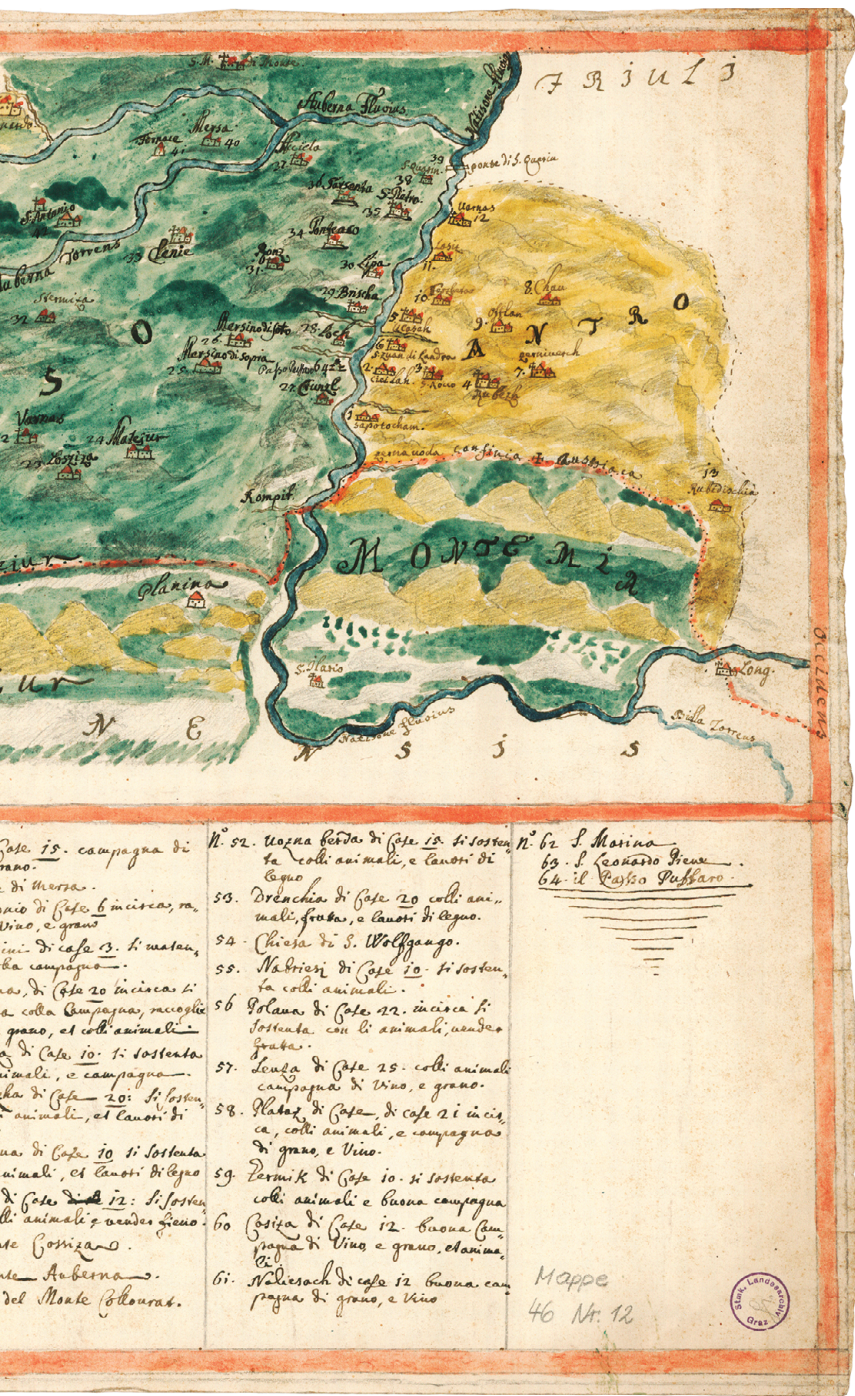 S. M. di Monte
FRIULI
Auberna Fluvius
Natisone Fluvius
Fornace
41
Mersa
40
37
39
ponte di S. Quirin
S. Quirin
38
36 Tarsenta
S. Pietro
35
Varnas
12
S. Antonio
34 Ponteaco
33 Clenie
31
30 Lipa
11
Auberna Torrens
10
8 Chau
29 Brischa
9
32
O
ANTRO
S
Mersino di soto
26
28 Loch
5
6
S. Zuan di Landra
Mersino di sopra
25
Passo Pusaro 64
2
3
S. Rocco
4
7
27
1
Sapotocham
Varnas
24 Matajur
23
zerna uoda
confinia Austriaca
13
Rompit
MONTEMIR
Planina
S. Ilario
Long.
Natisone Fluvius
Billa Torrens
Occidens
N E
N S I S
Case 15. campagna di
grano.
di Mersa.
di Case 6 incirca, ra„
Vino, e grano
ini di case 3. si
campagna.
di Case 20 incirca si
colla Campagna, raccoglie
grano, et colli animali
di Case 10. si sostenta
nimali, e campagna.
cha di Case 20: si sosten„
animali, et lauori di
na di Case 10 si sostenta
nimali, et lauori di legno
di Case 12: si sosten
lli animali e vender fieno.
nte Cossiza.
nte Auberna.
del Monte Collourat.
No. 52. Uozna berda di Case 15. si sosten„
ta colli animali, e lauori di
legno
53. Drenchia di Case 20 colli ani„
mali, frutta, e lauori di legno.
54. Chiesa di S. Wolfgango.
55. Nabriesi di Case 10. si sosten„
ta colli animali.
56 Polana di Case 22. incirca si
sostenta con li animali, vender
frutta.
57. Lenza di Case 25. colli animali
campagna di Vino, e grano.
58. Plataz di Case, di case 21 incir„
ca, colli animali, e campagna
di grano, e Vino.
59. Zermik di Case 10. si sostenta
colli animali e buona campagna
60 Cosiza di Case 12. buona Cam„
pagna di Vino e grano, et anima„
li
61. Naliesach di case 12 buona cam„
pagna di grano, e Vino
No. 62 S. Marina
63. S. Leonardo Pieue.
64. il Passo Pussaro.
Mappe
46 Nr. 12
Stmk. Landesarchiv
Graz